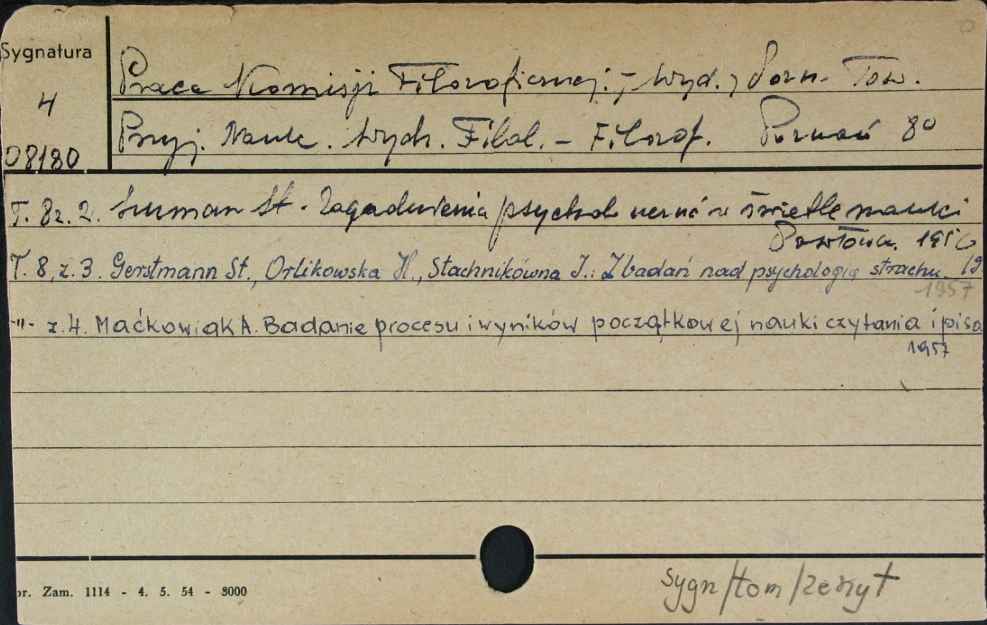 Sygnatura
4
08180
Prace Komisji Filozoficznej. - Wyd., Pozn. Tow.
Przyj. Nauk. Wydz. Filol. - Filozof. Poznań 8°
T. 8 z. 2. Szuman St. Zagadnienia psychol. uczuć w świetle nauki
Pawłowa. 1956
T. 8, z. 3. Gerstmann St., Orlikowska H., Stachnikówna J.: Z badań nad psychologią strachu. 19
1957
-"- z. 4. Maćkowiak A. Badanie procesu i wyników początkowej nauki czytania i pisa
1957
or. Zam. 1114 - 4. 5. 54 - 8000
sygn/tom/zeszyt